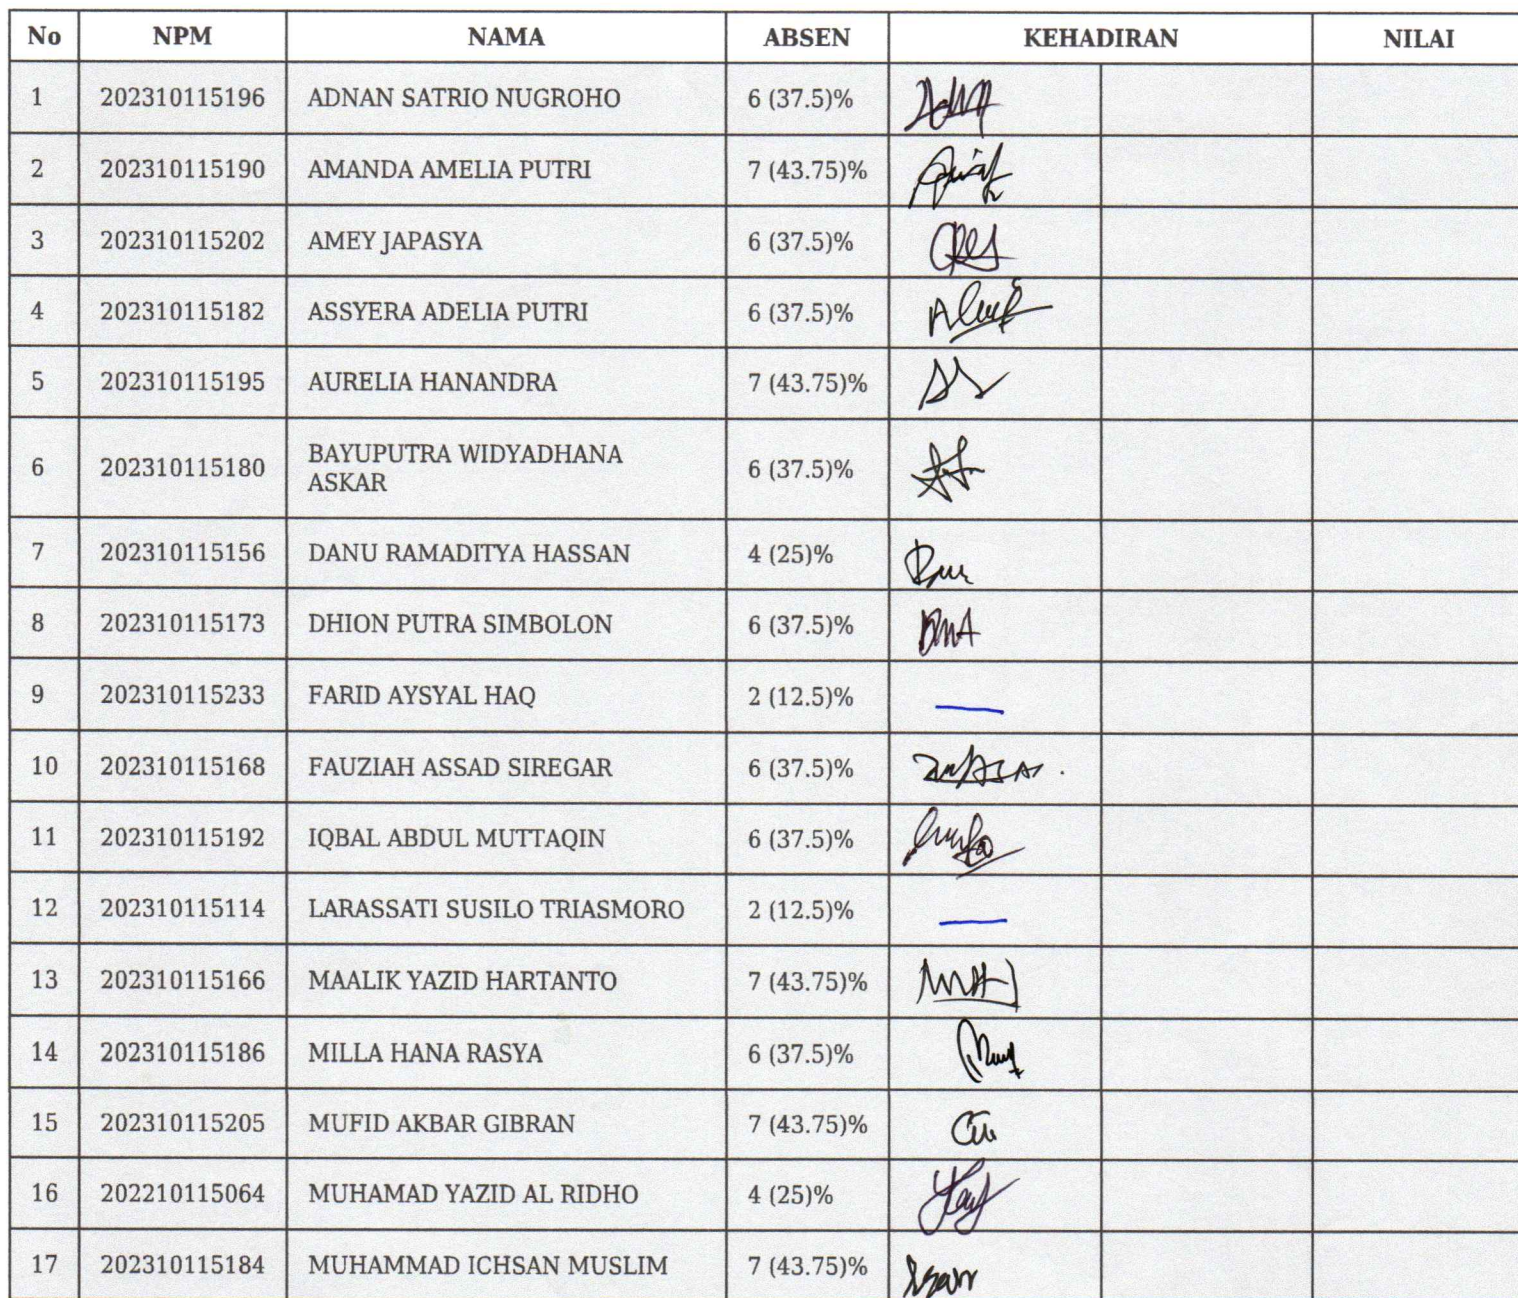 No NPM NAMA ABSEN KEHADIRAN NILAI
1 202310115196 ADNAN SATRIO NUGROHO 6 (37.5)%
2 202310115190 AMANDA AMELIA PUTRI 7 (43.75)%
3 202310115202 AMEY JAPASYA 6 (37.5)%
4 202310115182 ASSYERA ADELIA PUTRI 6 (37.5)%
5 202310115195 AURELIA HANANDRA 7 (43.75)%
6 202310115180 BAYUPUTRA WIDYADHANA
ASKAR 6 (37.5)%
7 202310115156 DANU RAMADITYA HASSAN 4 (25)%
8 202310115173 DHION PUTRA SIMBOLON 6 (37.5)%
9 202310115233 FARID AYSYAL HAQ 2 (12.5)%
10 202310115168 FAUZIAH ASSAD SIREGAR 6 (37.5)%
11 202310115192 IQBAL ABDUL MUTTAQIN 6 (37.5)%
12 202310115114 LARASSATI SUSILO TRIASMORO 2 (12.5)%
13 202310115166 MAALIK YAZID HARTANTO 7 (43.75)%
14 202310115186 MILLA HANA RASYA 6 (37.5)%
15 202310115205 MUFID AKBAR GIBRAN 7 (43.75)%
16 202210115064 MUHAMAD YAZID AL RIDHO 4 (25)%
17 202310115184 MUHAMMAD ICHSAN MUSLIM 7 (43.75)%